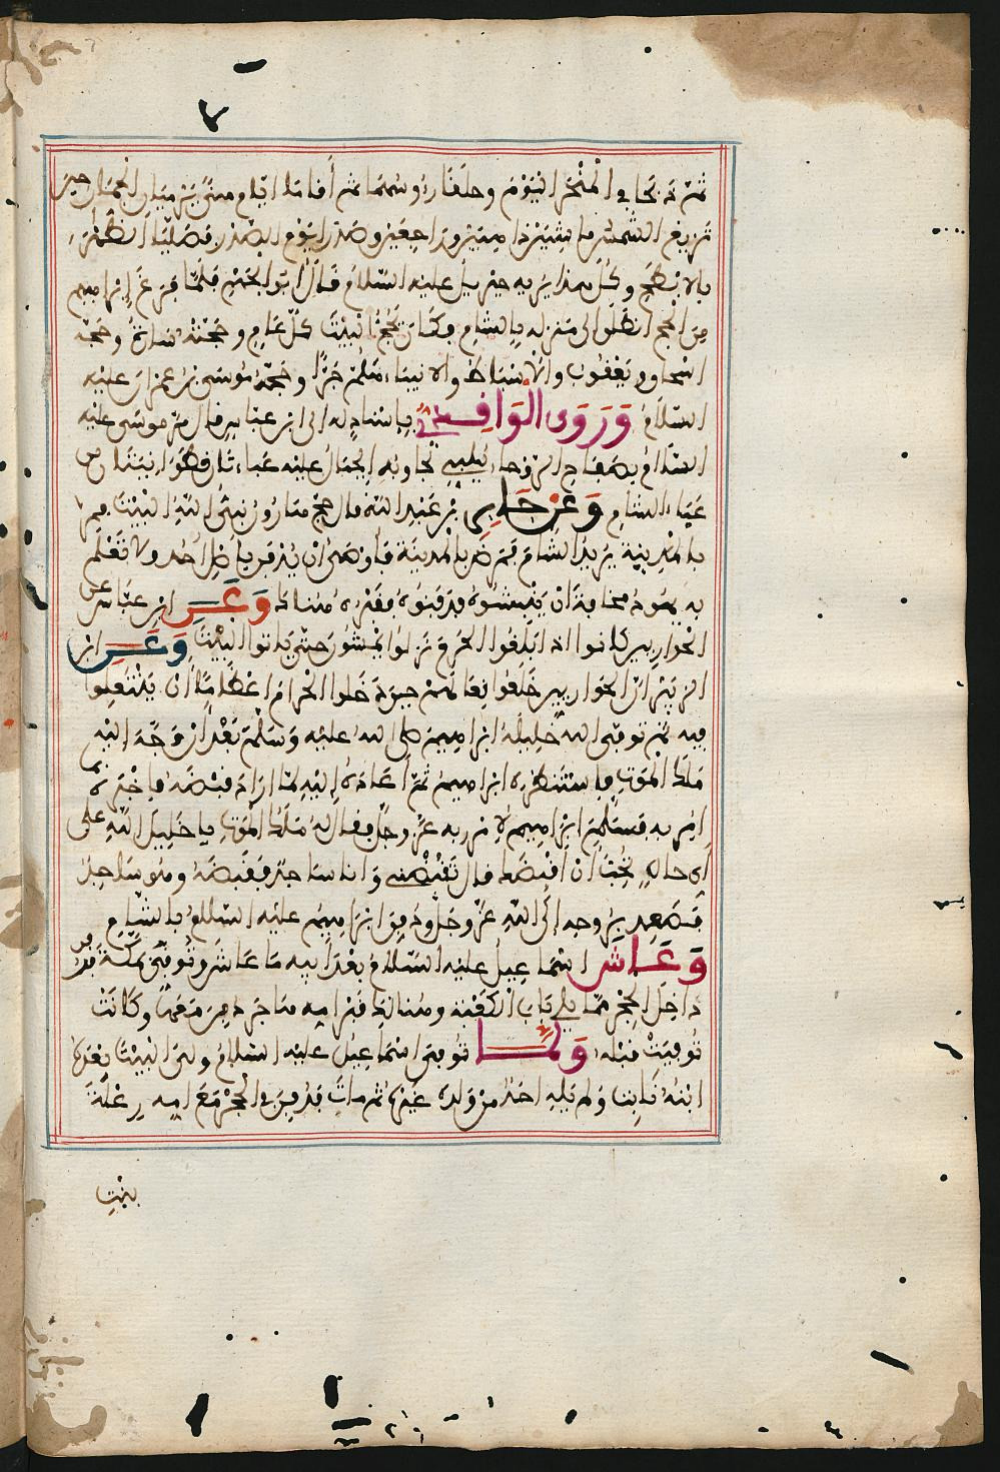 ثم ذبحا في المنحر اليوم وحلقا رءوسهما ثم أقاما أيام منى يرميان الجمار حين
تزيغ الشمس ماشيين ذاهبين وراجعين وصدرا يوم الصدر فصليا الظهر
بالأبطح وكل هذا يريه جبريل عليه السلام قال أبو الجهم فلما فرغ إبراهيم
من الحج انطلق إلى منزله بالشام فكان يحج البيت كل عام وحجته سارة وحجه
إسحاق ويعقوب والأسباط والأنبياء هلم جرا وحجه موسى بن عمران عليه
السلام وروى الواقدي بإسناد له إلى ابن عباس قال مر موسى عليه
السلام بصفاح الروحاء يلبي تجاوبه الجبال عليه عباءتان قطوانيتان من
عباء الشام وعن جابر بن عبد الله قال حج هارون نبي الله البيت فمر
بالمدينة يريد الشام فمرض بالمدينة فأوصى أن يدفن بأصل أحد ولا تعلم
به يهود مخافة أن ينبشوه فدفنوه فقبره هناك وعن ابن عباس عن
الحواريين كانوا إذا بلغوا الحرم نزلوا يمشون حتى يأتوا البيت وعن ابن
الزبير أن الحواريين خلعوا نعالهم حين دخلوا الحرم إعظاما أن ينتعلوا
فيه ثم توفى الله خليله إبراهيم صلى الله عليه وسلم بعد أن وجه إليه
ملك الموت فاستنظره إبراهيم ثم أعاده إليه لما أراد قبضه فأخبره بما
أمر به فسلم إبراهيم لأمر ربه عز وجل فقال له ملك الموت يا خليل الله على
أي حال تحب أن أقبضك قال تقبضني وأنا ساجد فقبضه وهو ساجد
فصعد بروحه إلى الله عز وجل ودفن إبراهيم عليه السلام بالشام
وعاش إسماعيل عليه السلام بعد أبيه ما عاش وتوفي بمكة فدفن
داخل الحجر مما يلي باب الكعبة وهنالك قبر أمه هاجر دفن معها وكانت
توفيت قبله ولما توفي إسماعيل عليه السلام ولي البيت بعده
ابنه نابت ولم يله أحد من ولده غيره ثم مات فدفن في الحجر مع أمه رعلة
بنت